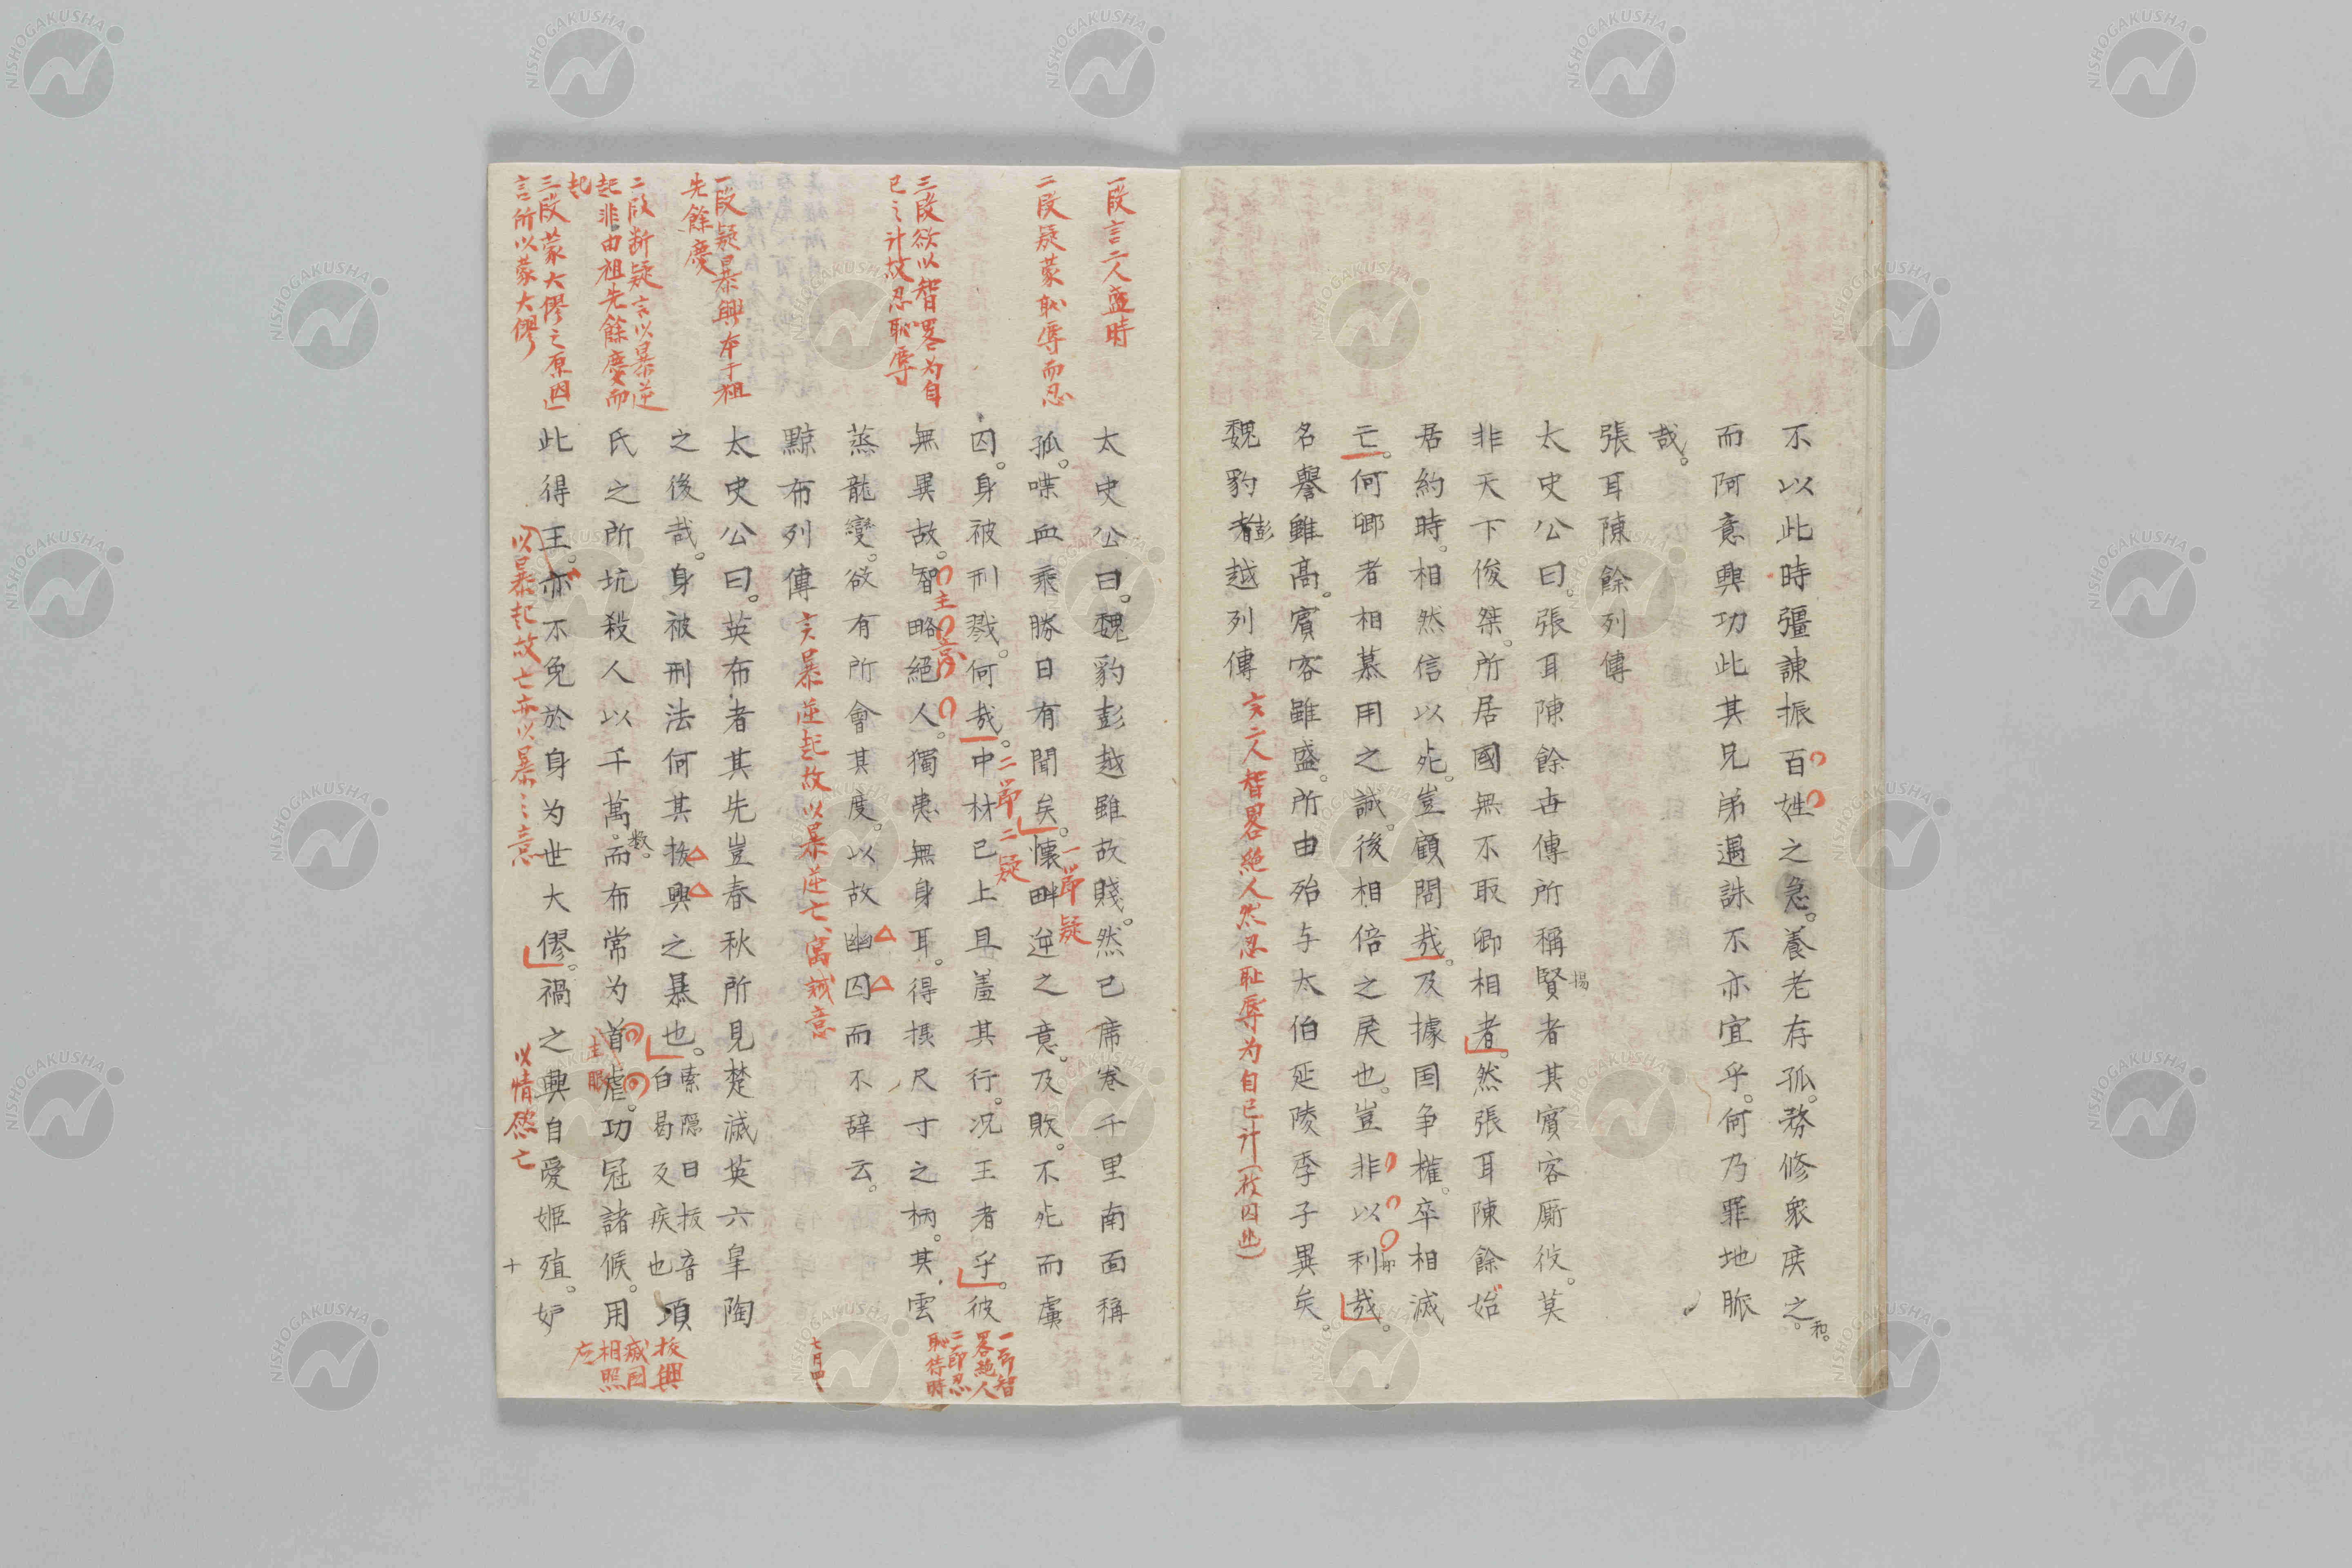 不以此時彊諫振百姓之急。養老存孤。務修衆庶之。和。
而阿意興功此其兄弟遇誅不亦宜乎。何乃罪地脈
哉。
張耳陳餘列傳
太史公曰。張耳陳餘世傳所稱賢者其賓客厮役。莫
非天下俊桀。所居國無不取卿相者。然張耳陳餘始
居約時。相然信以死。豈顧問哉。及據国争權。卒相滅
亡。何鄉者相慕用之誠。後相倍之戾也。豈非以利哉。
名譽雖髙。賓客雖盛。所由殆与太伯延陵季子異矣。
魏豹彭越列傳 言二人智畧絶人然忍恥辱为自已計(故囚逃)
一段言二人盛時
二段疑蒙恥辱而忍
三段欲以智畧为自
已之計故忍恥辱
太史公曰。魏豹彭越雖故賤。然已席巻千里南面稱
孤。喋血乘勝日有聞矣。懷畔逆之意。及敗。不死而虜
囚。身被刑戮。何哉。中材已上且羞其行。况王者乎。彼
無異故。智略絕人。獨患無身耳。得摂尺寸之柄。其雲
蒸龍變。欲有所會其度。以故幽囚而不辞云。
一節疑
二節二疑
主意
一節智
畧絶人
二節忍
恥待時
黥布列傳 言暴逆起故以暴逆亡、寓誡意
七月四、
一段疑暴興本于祖
先餘慶
二段断疑言以暴逆
起非由祖先餘慶而
起
三段蒙大僇之原因
言所以蒙大僇
太史公曰。英布者其先豈春秋所見楚滅英六皐陶
之後哉。身被刑法何其拔興之暴也。索隠曰拔音白曷反疾也項
氏之所坑殺人以千萬。数。而布常为首虐。功冠諸候。用
此得王。亦不免於身为世大僇。禍之興自愛姬殖。妒
主眼
拔興
滅国
相照
应
以暴起故亡亦以暴之意
以情慾亡
十